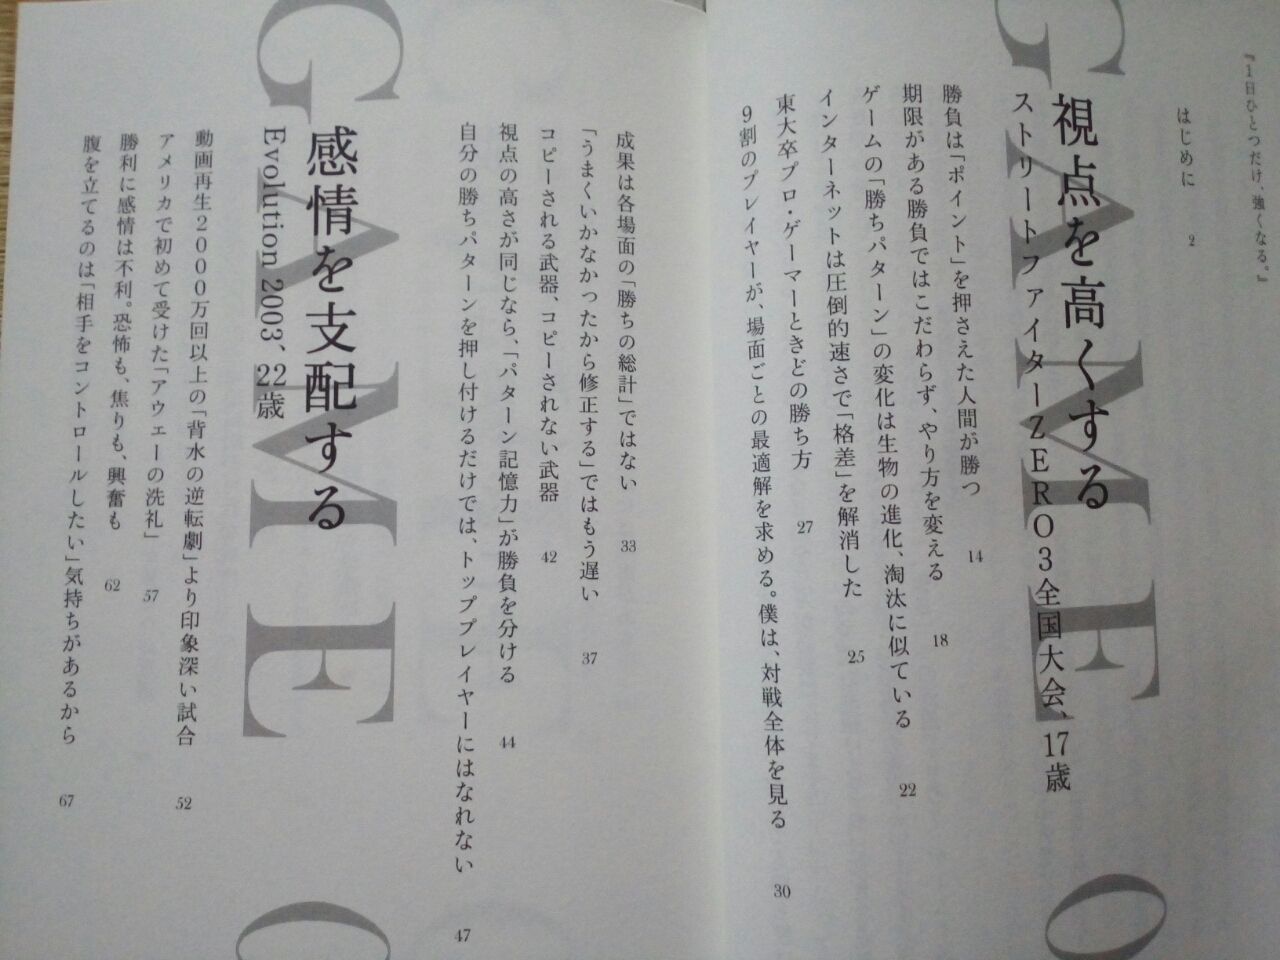 『1日ひとつだけ、強くなる。』
はじめに 2
GAME 0
視点を高くする
ストリートファイターZERO3全国大会、17歳
勝負は「ポイント」を押さえた人間が勝つ 14
期限がある勝負ではこだわらず、やり方を変える 18
ゲームの「勝ちパターン」の変化は生物の進化、淘汰に似ている 22
インターネットは圧倒的速さで「格差」を解消した 25
東大卒プロ・ゲーマーときどの勝ち方 27
9割のプレイヤーが、場面ごとの最適解を求める。僕は、対戦全体を見る 30
成果は各場面の「勝ちの総計」ではない 33
「うまくいかなかったから修正する」ではもう遅い 37
コピーされる武器、コピーされない武器 42
視点の高さが同じなら、「パターン記憶力」が勝負を分ける 44
自分の勝ちパターンを押し付けるだけでは、トッププレイヤーにはなれない 47
GAME 0
感情を支配する
Evolution 2003、22歳
動画再生2000万回以上の「背水の逆転劇」より印象深い試合 52
アメリカで初めて受けた「アウェーの洗礼」 57
勝利に感情は不利。恐怖も、焦りも、興奮も 62
腹を立てるのは「相手をコントロールしたい」気持ちがあるから 67